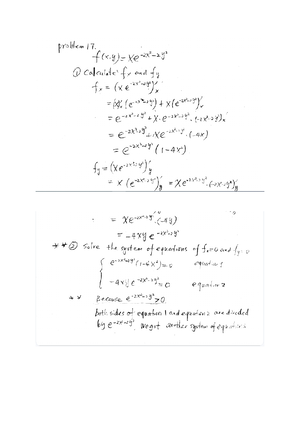 problem 17.
f(x,y) = xe^{-2x²-2y²}
① Calculate f_x and f_y
f_x = (xe^{-2x²-2y²})'_x
= (x)'_x (e^{-2x²-2y²}) + x(e^{-2x²-2y²})'_x
= e^{-2x²-2y²} + x·e^{-2x²-2y²}·(-2x²-2y²)'_x
= e^{-2x²-2y²} + xe^{-2x²-2y²}·(-4x)
= e^{-2x²-2y²}(1-4x²)
f_y = (xe^{-2x²-2y²})'_y
= x(e^{-2x²-2y²})'_y = xe^{-2x²-2y²}·(-2x²-2y²)'_y
= xe^{-2x²-2y²}·(-4y)
= -4xye^{-2x²-2y²}
** ② Solve the system of equations of f_x=0 and f_y=0
{ e^{-2x²-2y²}(1-4x²)=0 equation 1
-4xye^{-2x²-2y²}=0 equation 2
** Because e^{-2x²-2y²}>0
Both sides of equation 1 and equation 2 are divided
by e^{-2x²-2y²}. We get another system of equations